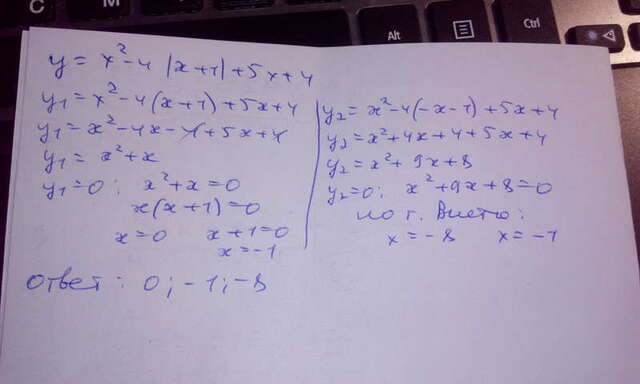 C
M
Alt
Ctrl
y = x² - 4 |x+1| + 5x + 4
y₁ = x² - 4(x+1) + 5x + 4
y₁ = x² - 4x - 4 + 5x + 4
y₁ = x² + x
y₁ = 0; x² + x = 0
x(x+1) = 0
x = 0 x + 1 = 0
x = -1
y₂ = x² - 4(-x-1) + 5x + 4
y₂ = x² + 4x + 4 + 5x + 4
y₂ = x² + 9x + 8
y₂ = 0; x² + 9x + 8 = 0
по т. Виета:
x = -8 x = -1
ответ: 0; -1; -8